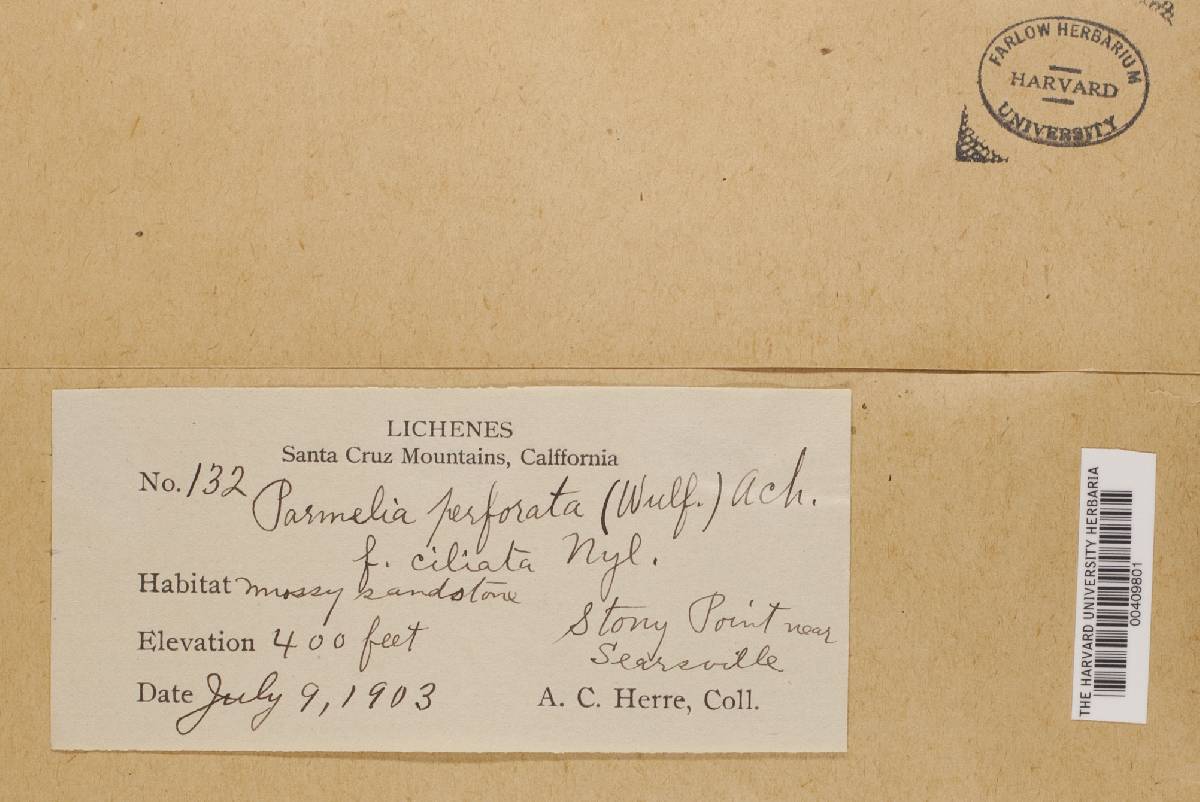 FARLOW HERBARIUM
HARVARD
UNIVERSITY
LICHENES
Santa Cruz Mountains, Calffornia
No. 132
Parmelia perforata (Wulf.) Ach.
f. ciliata Nyl.
Habitat mossy sandstone
Stony Point near
Searsville
Elevation 400 feet
Date July 9, 1903
A. C. Herre, Coll.
THE HARVARD UNIVERSITY HERBARIA
00409801